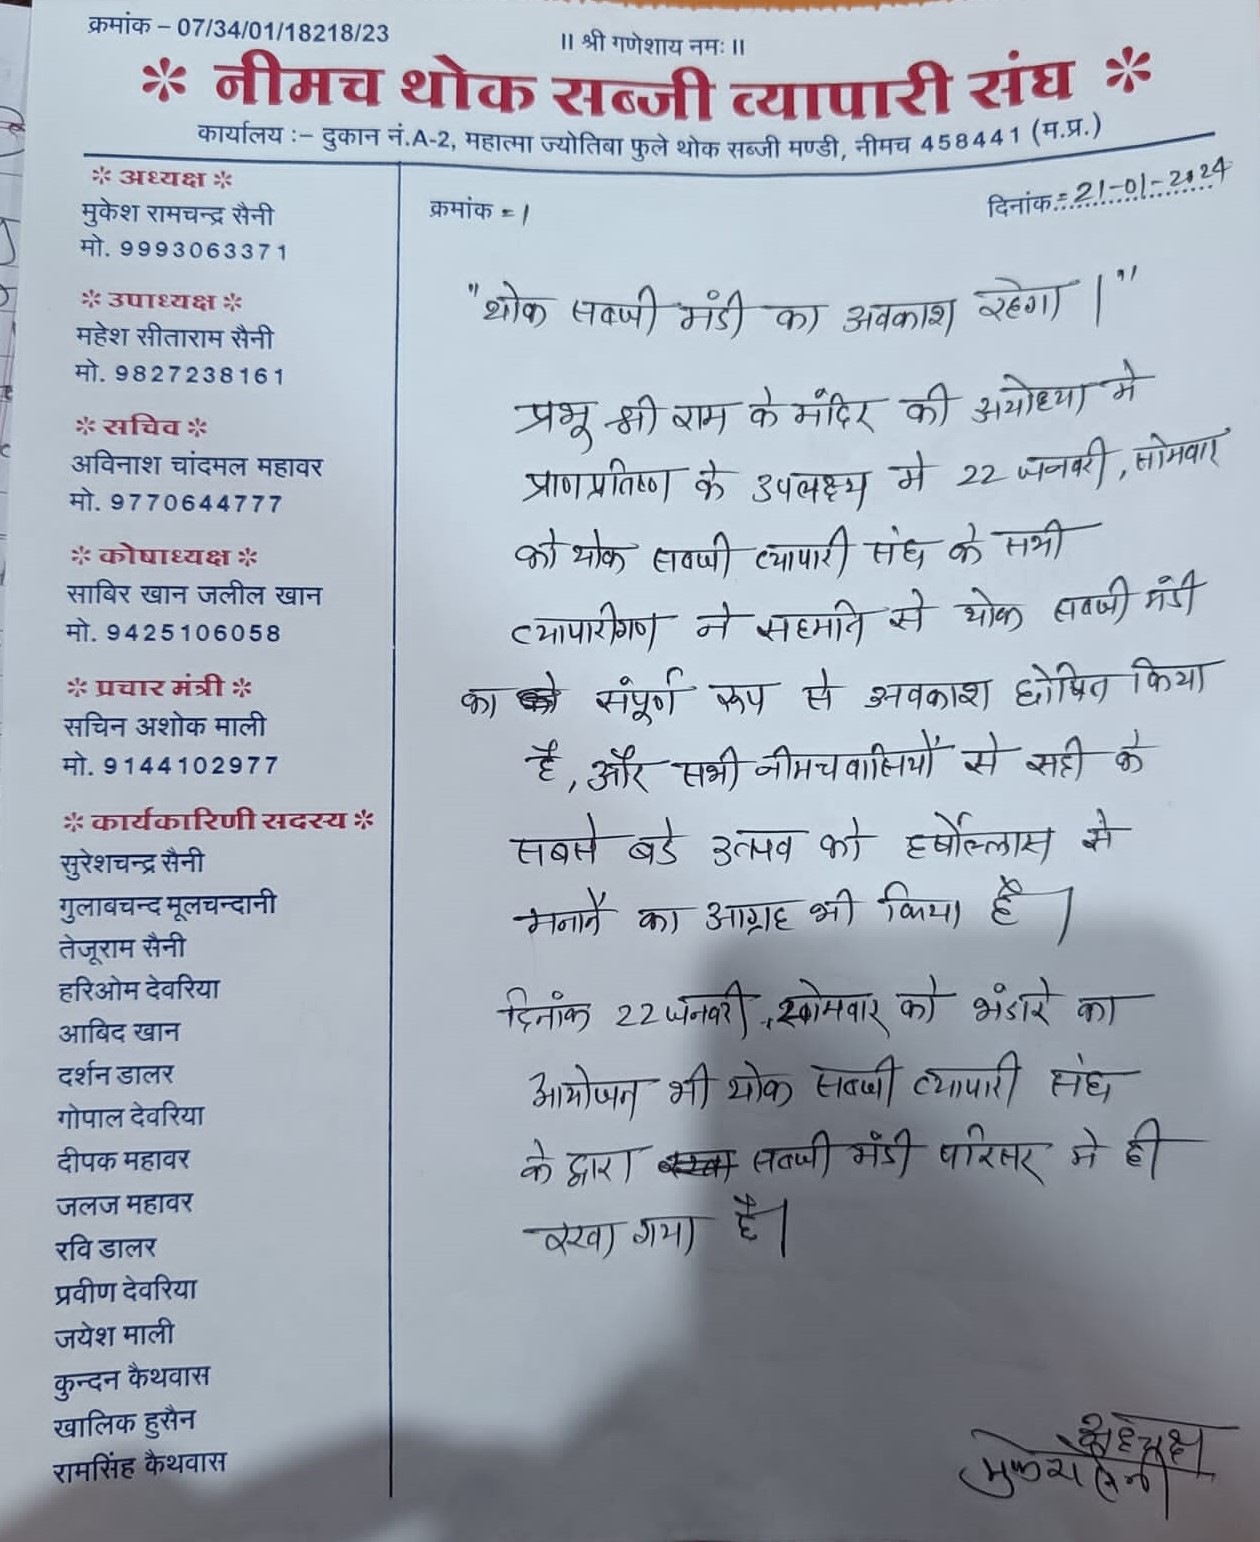 क्रमांक – 07/34/01/18218/23
॥ श्री गणेशाय नमः ॥
* नीमच थोक सब्जी व्यापारी संघ *
कार्यालय :– दुकान नं.A-2, महात्मा ज्योतिबा फुले थोक सब्जी मण्डी, नीमच 458441 (म.प्र.)
* अध्यक्ष *
मुकेश रामचन्द्र सैनी
मो. 9993063371
* उपाध्यक्ष *
महेश सीताराम सैनी
मो. 9827238161
* सचिव *
अविनाश चांदमल महावर
मो. 9770644777
* कोषाध्यक्ष *
साबिर खान जलील खान
मो. 9425106058
* प्रचार मंत्री *
सचिन अशोक माली
मो. 9144102977
* कार्यकारिणी सदस्य *
सुरेशचन्द्र सैनी
गुलाबचन्द मूलचन्दानी
तेजूराम सैनी
हरिओम देवरिया
आबिद खान
दर्शन डालर
गोपाल देवरिया
दीपक महावर
जलज महावर
रवि डालर
प्रवीण देवरिया
जयेश माली
कुन्दन कैथवास
खालिक हुसैन
रामसिंह कैथवास
क्रमांक = 1
दिनांक = 21-01-2024
"थोक सब्जी मंडी का अवकाश रहेगा।"
प्रभू श्री राम के मंदिर की अयोध्या मे
प्राणप्रतिष्ठा के उपलक्ष्य मे 22 जनवरी, सोमवार
को थोक सब्जी व्यापारी संघ के सभी
व्यापारीगण ने सहमति से थोक सब्जी मंडी
का संपूर्ण रूप से अवकाश घोषित किया
है, और सभी नीमचवासियों से सदी के
सबसे बडे उत्सव को हर्षोल्लास से
मनाने का आग्रह भी किया है।
दिनांक 22 जनवरी, सोमवार को भंडारे का
आयोजन भी थोक सब्जी व्यापारी संघ
के द्वारा सब्जी मंडी परिसर मे ही
रखा गया है।
अध्यक्ष
मुकेश सैनी